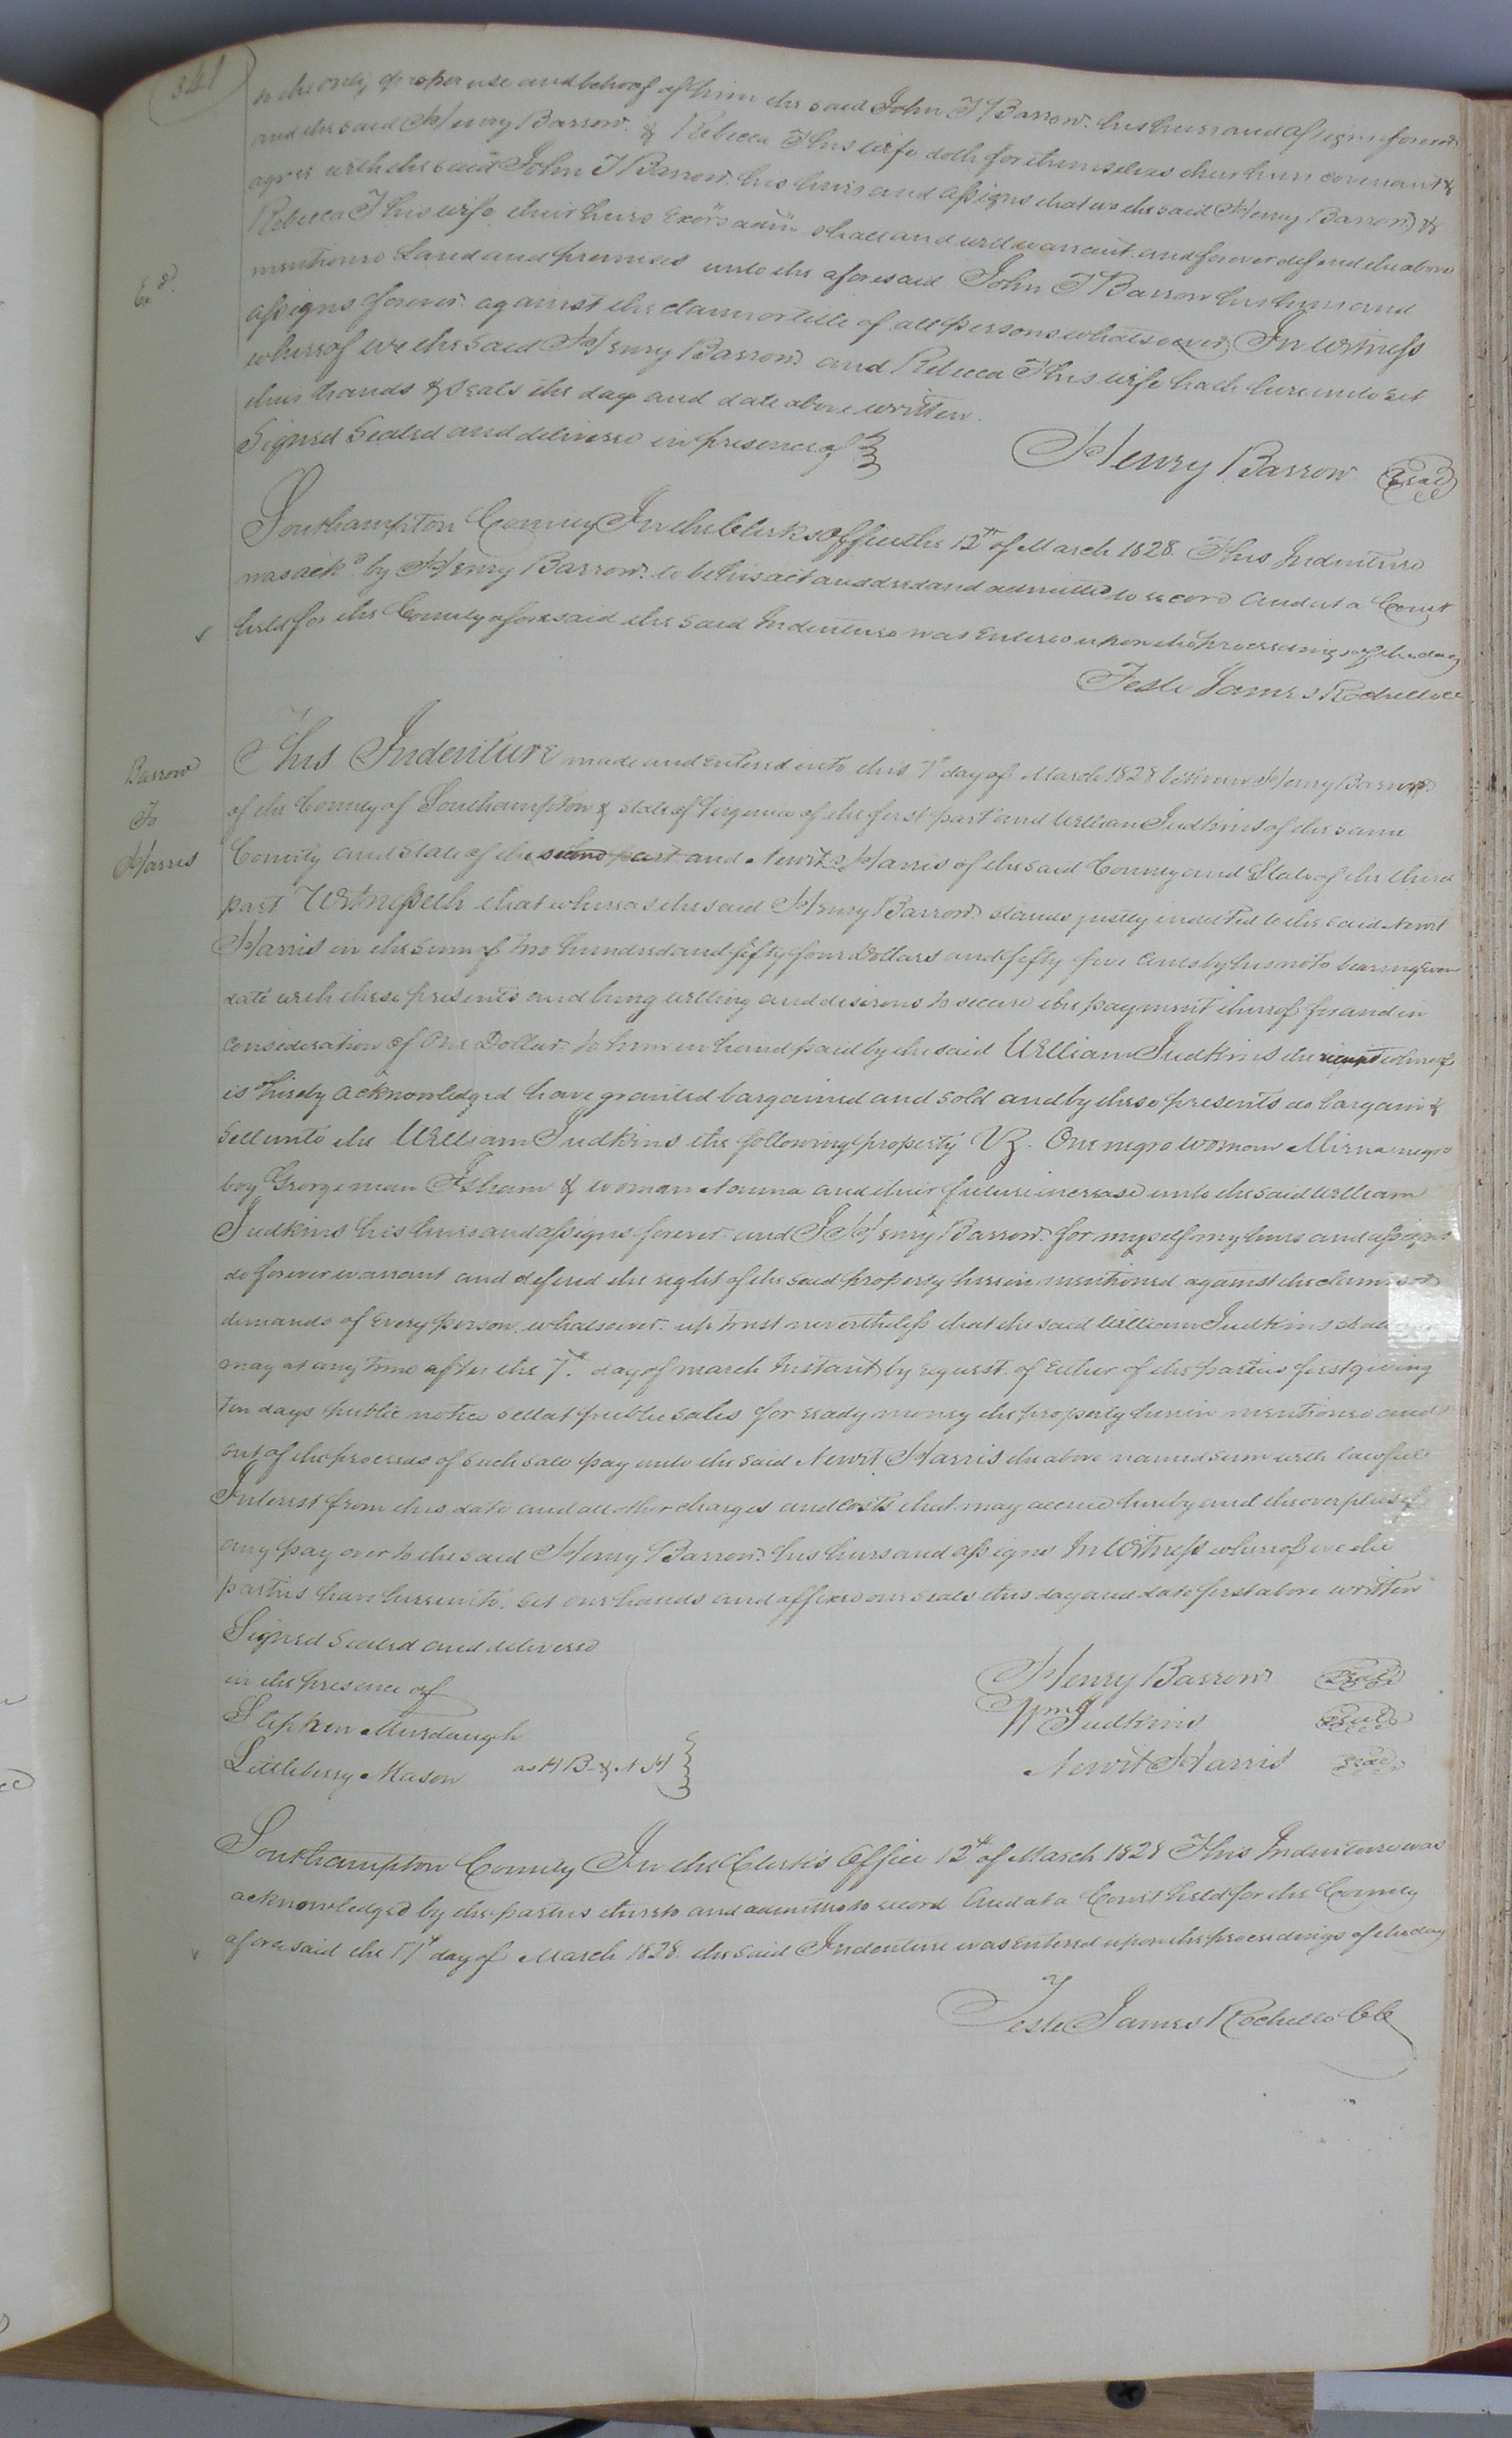 341
to the only proper use and behoof of him the said John T Barrow his heirs and assigns forever
and the said Henry Barrow & Rebecca T his wife doth for themselves their heirs covenant &
agree with the said John T Barrow his heirs and assigns that we the said Henry Barrow &
Rebecca T his wife their heirs Exors admrs shall and will warrant and forever defend the above
Exd.
mentioned Land and premises unto the aforesaid John T Barrow his heirs and
assigns forever against the claim or title of all persons whatsoever In witness
whereof we the said Henry Barrow and Rebecca T his wife hath hereunto set
their hands & seals the day and date above written.
Signed Sealed and delivered in presence of
Henry Barrow Seal
Southampton County In the Clerks Office the 12th of March 1828. This Indenture
was ackd. by Henry Barrow to be his act and deed and admitted to record And at a Court
held for the County aforesaid the said Indenture was Entered upon the proceedings of the day
Teste James Rochelle CC
Barrow
To
Harris
This Indenture made and entered into this 7th day of March 1828 between Henry Barrow
of the County of Southampton & state of Virginia of the first part and William Judkins of the same
County and State of the second part and Newit Harris of the said County and State of the third
part Witnesseth that whereas the said Henry Barrow stands justly indebted to the said Newit
Harris in the sum of two hundred and fifty four Dollars and fifty five Cents by his note bearing even
date with these presents and being willing and desirous to secure the payment thereof for and in
consideration of One Dollar to him in hand paid by the said William Judkins the receipt whereof
is hereby acknowledged have granted bargained and sold and by these presents do bargain &
Sell unto the William Judkins the following property Viz. One negro woman negro
boy George man Isham & woman and their future increase unto the said William
Judkins his heirs and assigns forever and I Henry Barrow for myself my heirs and assigns
do forever warrant and defend the right of the said property herein mentioned against the claims or
demands of every person whatsoever up trust nevertheless that the said William Judkins shall
may at any time after the 7th. day of march Instant by request of Either of the parties first giving
ten days public notice sell at public sale for ready money the property herein mentioned and
out of the proceeds of such sale pay unto the said Newit Harris the above named sum with lawful
Interest from this date and all other charges and costs that may accrue hereby and the overplus if
any pay over to the said Henry Barrow his heirs and assigns In Witness whereof we the
parties have hereunto set our hands and affixed our seals this day and date first above written
Signed Sealed and delivered
in the presence of
Stephen Murdaugh
Littleberry Mason as H B & N H
Henry Barrow Seal
Wm Judkins Seal
Newit Harris Seal
Southampton County In the Clerks Office 12th of March 1828 This Indenture was
acknowledged by the parties thereto and admitted to record And at a Court held for the County
aforesaid the 17th day of March 1828 the said Indenture was entered upon the proceedings of the day
Teste James Rochelle CC